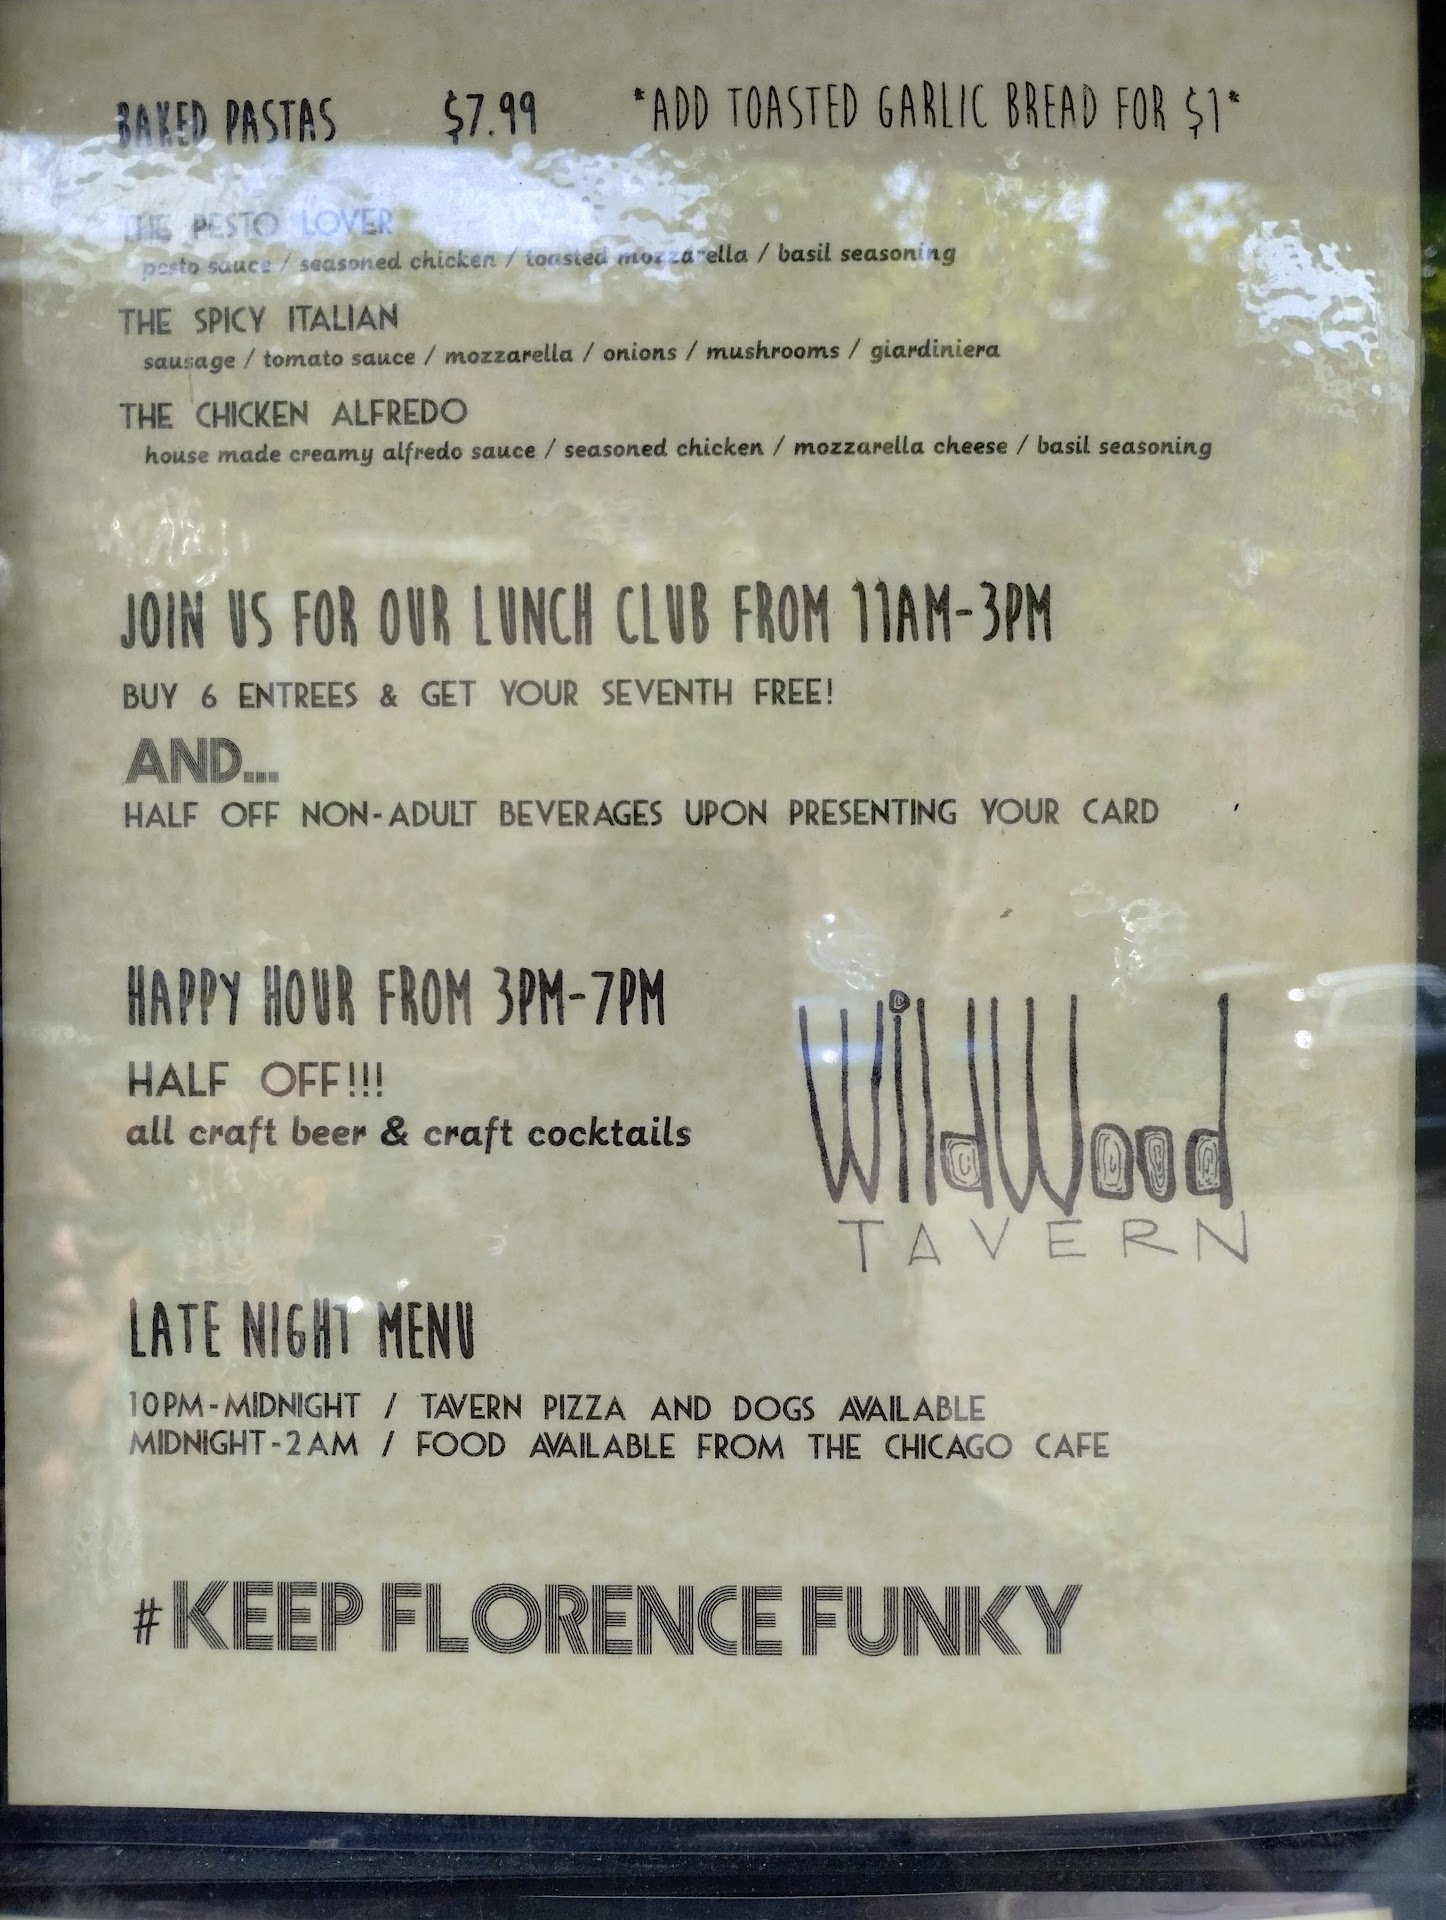 BAKED PASTAS $7.99 *ADD TOASTED GARLIC BREAD FOR $1*
THE PESTO LOVER
pesto sauce / seasoned chicken / toasted mozzarella / basil seasoning
THE SPICY ITALIAN
sausage / tomato sauce / mozzarella / onions / mushrooms / giardiniera
THE CHICKEN ALFREDO
house made creamy alfredo sauce / seasoned chicken / mozzarella cheese / basil seasoning
JOIN US FOR OUR LUNCH CLUB FROM 11AM-3PM
BUY 6 ENTREES & GET YOUR SEVENTH FREE!
AND...
HALF OFF NON-ADULT BEVERAGES UPON PRESENTING YOUR CARD
HAPPY HOUR FROM 3PM-7PM
HALF OFF!!!
all craft beer & craft cocktails
WildWood
TAVERN
LATE NIGHT MENU
10PM-MIDNIGHT / TAVERN PIZZA AND DOGS AVAILABLE
MIDNIGHT-2AM / FOOD AVAILABLE FROM THE CHICAGO CAFE
#KEEP FLORENCE FUNKY